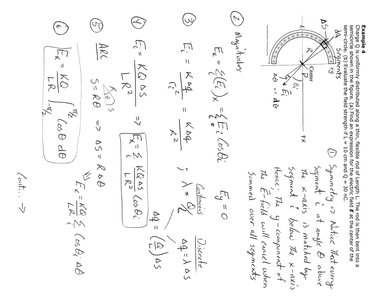 Example 4
Charge Q is uniformly distributed along a thin, flexible rod of length L. The rod is then bent into a
semicircle shown in the figure. (a) Find an expression for the electric field E at the center of the
semi-circle. (b) Evaluate the field strength if L = 10 cm and Q = 30 nC.
Segments
Center
① Symmetry ⇒ Notice that every
segment i at angle θ above
the x-axis is matched by
segment i below the x-axis
Hence, the y-component of
the E-field will cancel when
summed over all segments
② Magnitudes
Ex = Σ(Ei)x = ΣEi cosθi
Ey = 0
③ Ei = K Δq / ri² = K Δq / R²
; λ = Q/L
Continuous
Discrete
Δq = λ Δs
Δq = (Q/L) Δs
④ Ei = KQ Δs / LR² ⇒ Ex = Σ KQ Δs / LR² cosθi
⑤ ARC
S = Rθ ⇒ Δs = R Δθ
⇒ Ex = KQ / LR Σ cosθi Δθ
⑥ Ex = KQ / LR ∫ cosθ dθ
Cont... ⇒